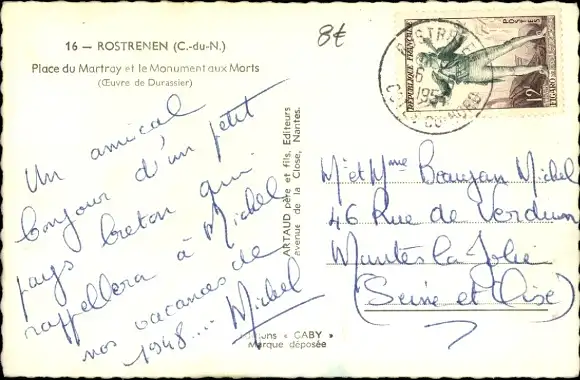 16 — ROSTRENEN (C.-du-N.)
Place du Martray et le Monument aux Morts
(Œuvre de Durassier)
8€
Un amical
bonjour d'un petit
pays breton qui
rappellera à Michel
nos vacances de
1948... Michel
ARTAUD père et fils, Editeurs
avenue de la Close, Nantes.
Editions « GABY »
Marque déposée
RÉPUBLIQUE FRANÇAISE
POSTES
12F
FIGARO
Mr et Mme Beaujan Michel
46 Rue de Verdun
Mantes la Jolie
(Seine et Oise)